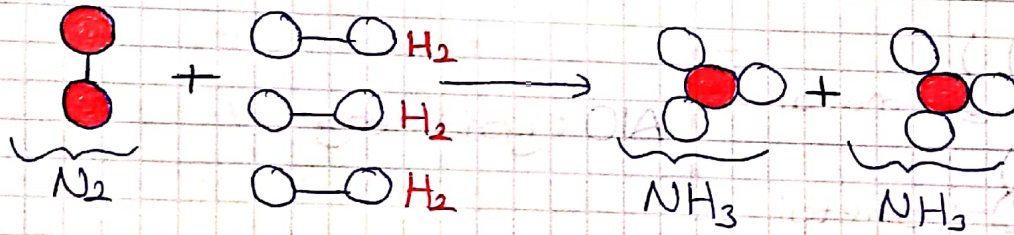 + H2
H2
H2
→ +
N2
NH3
NH3